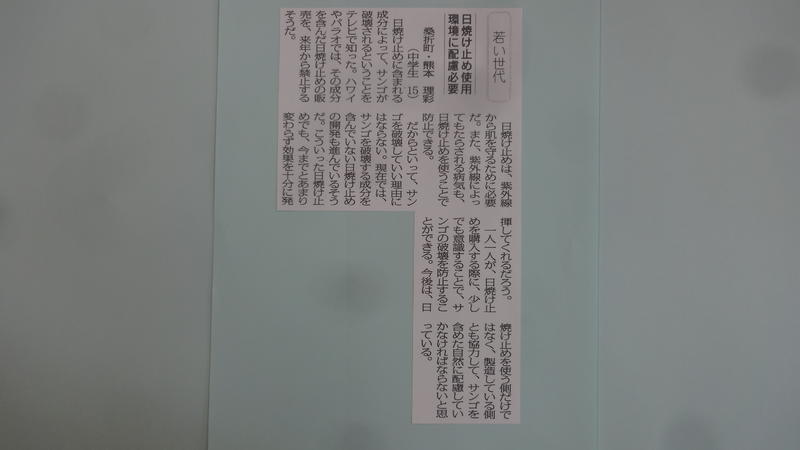 若い世代
日焼け止め使用
環境に配慮必要
桑折町・熊本 理彩
(中学生 15)
日焼け止めに含まれる
成分によって、サンゴが
破壊されるということを
テレビで知った。ハワイ
やパラオでは、その成分
を含んだ日焼け止めの販
売を、来年から禁止する
そうだ。
日焼け止めは、紫外線
から肌を守るために必要
だ。また、紫外線によっ
てもたらされる病気も、
日焼け止めを使うことで
防止できる。
だからといって、サン
ゴを破壊していい理由に
はならない。現在では、
サンゴを破壊する成分を
含んでいない日焼け止め
の開発も進んでいるそう
だ。こういった日焼け止
めでも、今までとあまり
変わらず効果を十分に発
揮してくれるだろう。
一人一人が、日焼け止
めを購入する際に、少し
でも意識することで、サ
ンゴの破壊を防止するこ
とができる。今後は、日
焼け止めを使う側だけで
はなく、製造している側
とも協力して、サンゴを
含めた自然に配慮してい
かなければならないと思
っている。